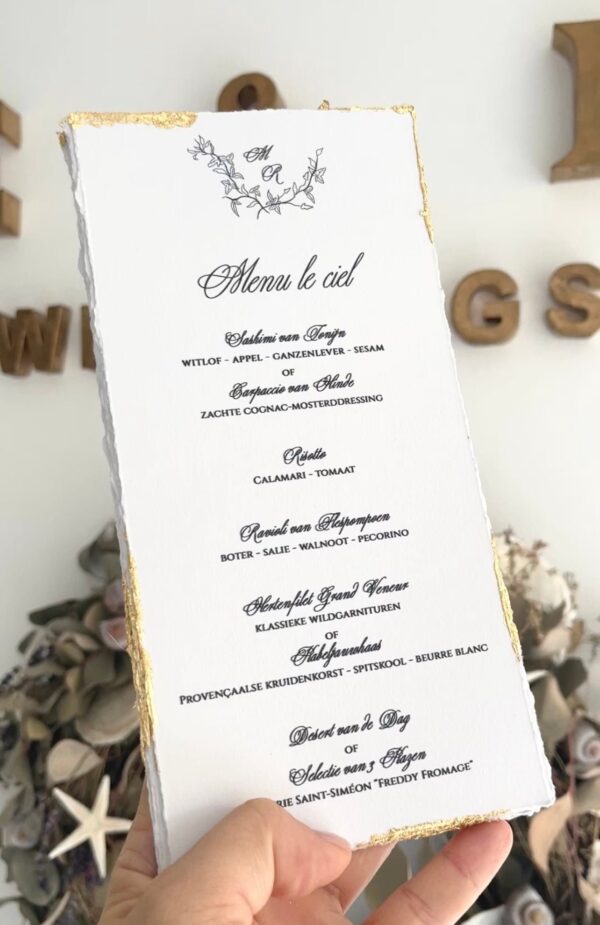 M
R
Menu le ciel
Sashimi van Tonijn
WITLOF - APPEL - GANZENLEVER - SESAM
OF
Carpaccio van Hinde
ZACHTE COGNAC-MOSTERDDRESSING
Risotto
CALAMARI - TOMAAT
Ravioli van Flespompoen
BOTER - SALIE - WALNOOT - PECORINO
Hertenfilet Grand Veneur
KLASSIEKE WILDGARNITUREN
OF
Kabeljauwhaas
PROVENÇAALSE KRUIDENKORST - SPITSKOOL - BEURRE BLANC
Desert van de Dag
OF
Selectie van 3 Kazen
RIE SAINT-SIMÉON "FREDDY FROMAGE"
GS